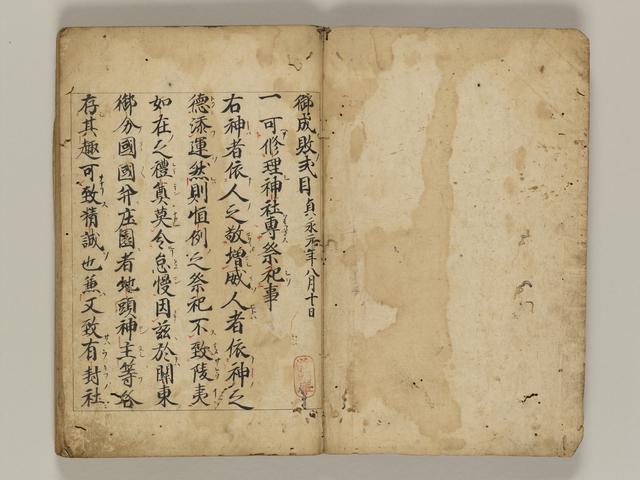 御成敗式目貞永元年八月十日
一可修理神社専祭祀事
右神者依人之敬増威人者依神之
德添運然則恒例之祭祀不致陵夷
如在之禮奠莫令怠慢因茲於関東
御分國國并庄園者地頭神主等各
存其趣可致精誠也兼又致有封社